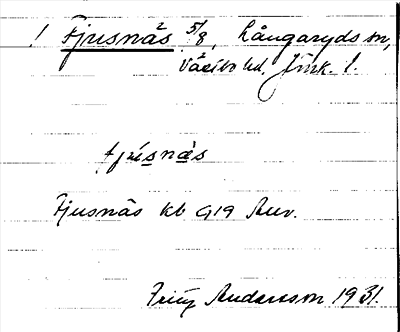 ! Fjusnäs 5/8, Långaryds sn,
Västbo hd. Jönk. l.
fjusnäs
Fjusnäs kb 1919 Anv.
Fritz Andersson 1931.